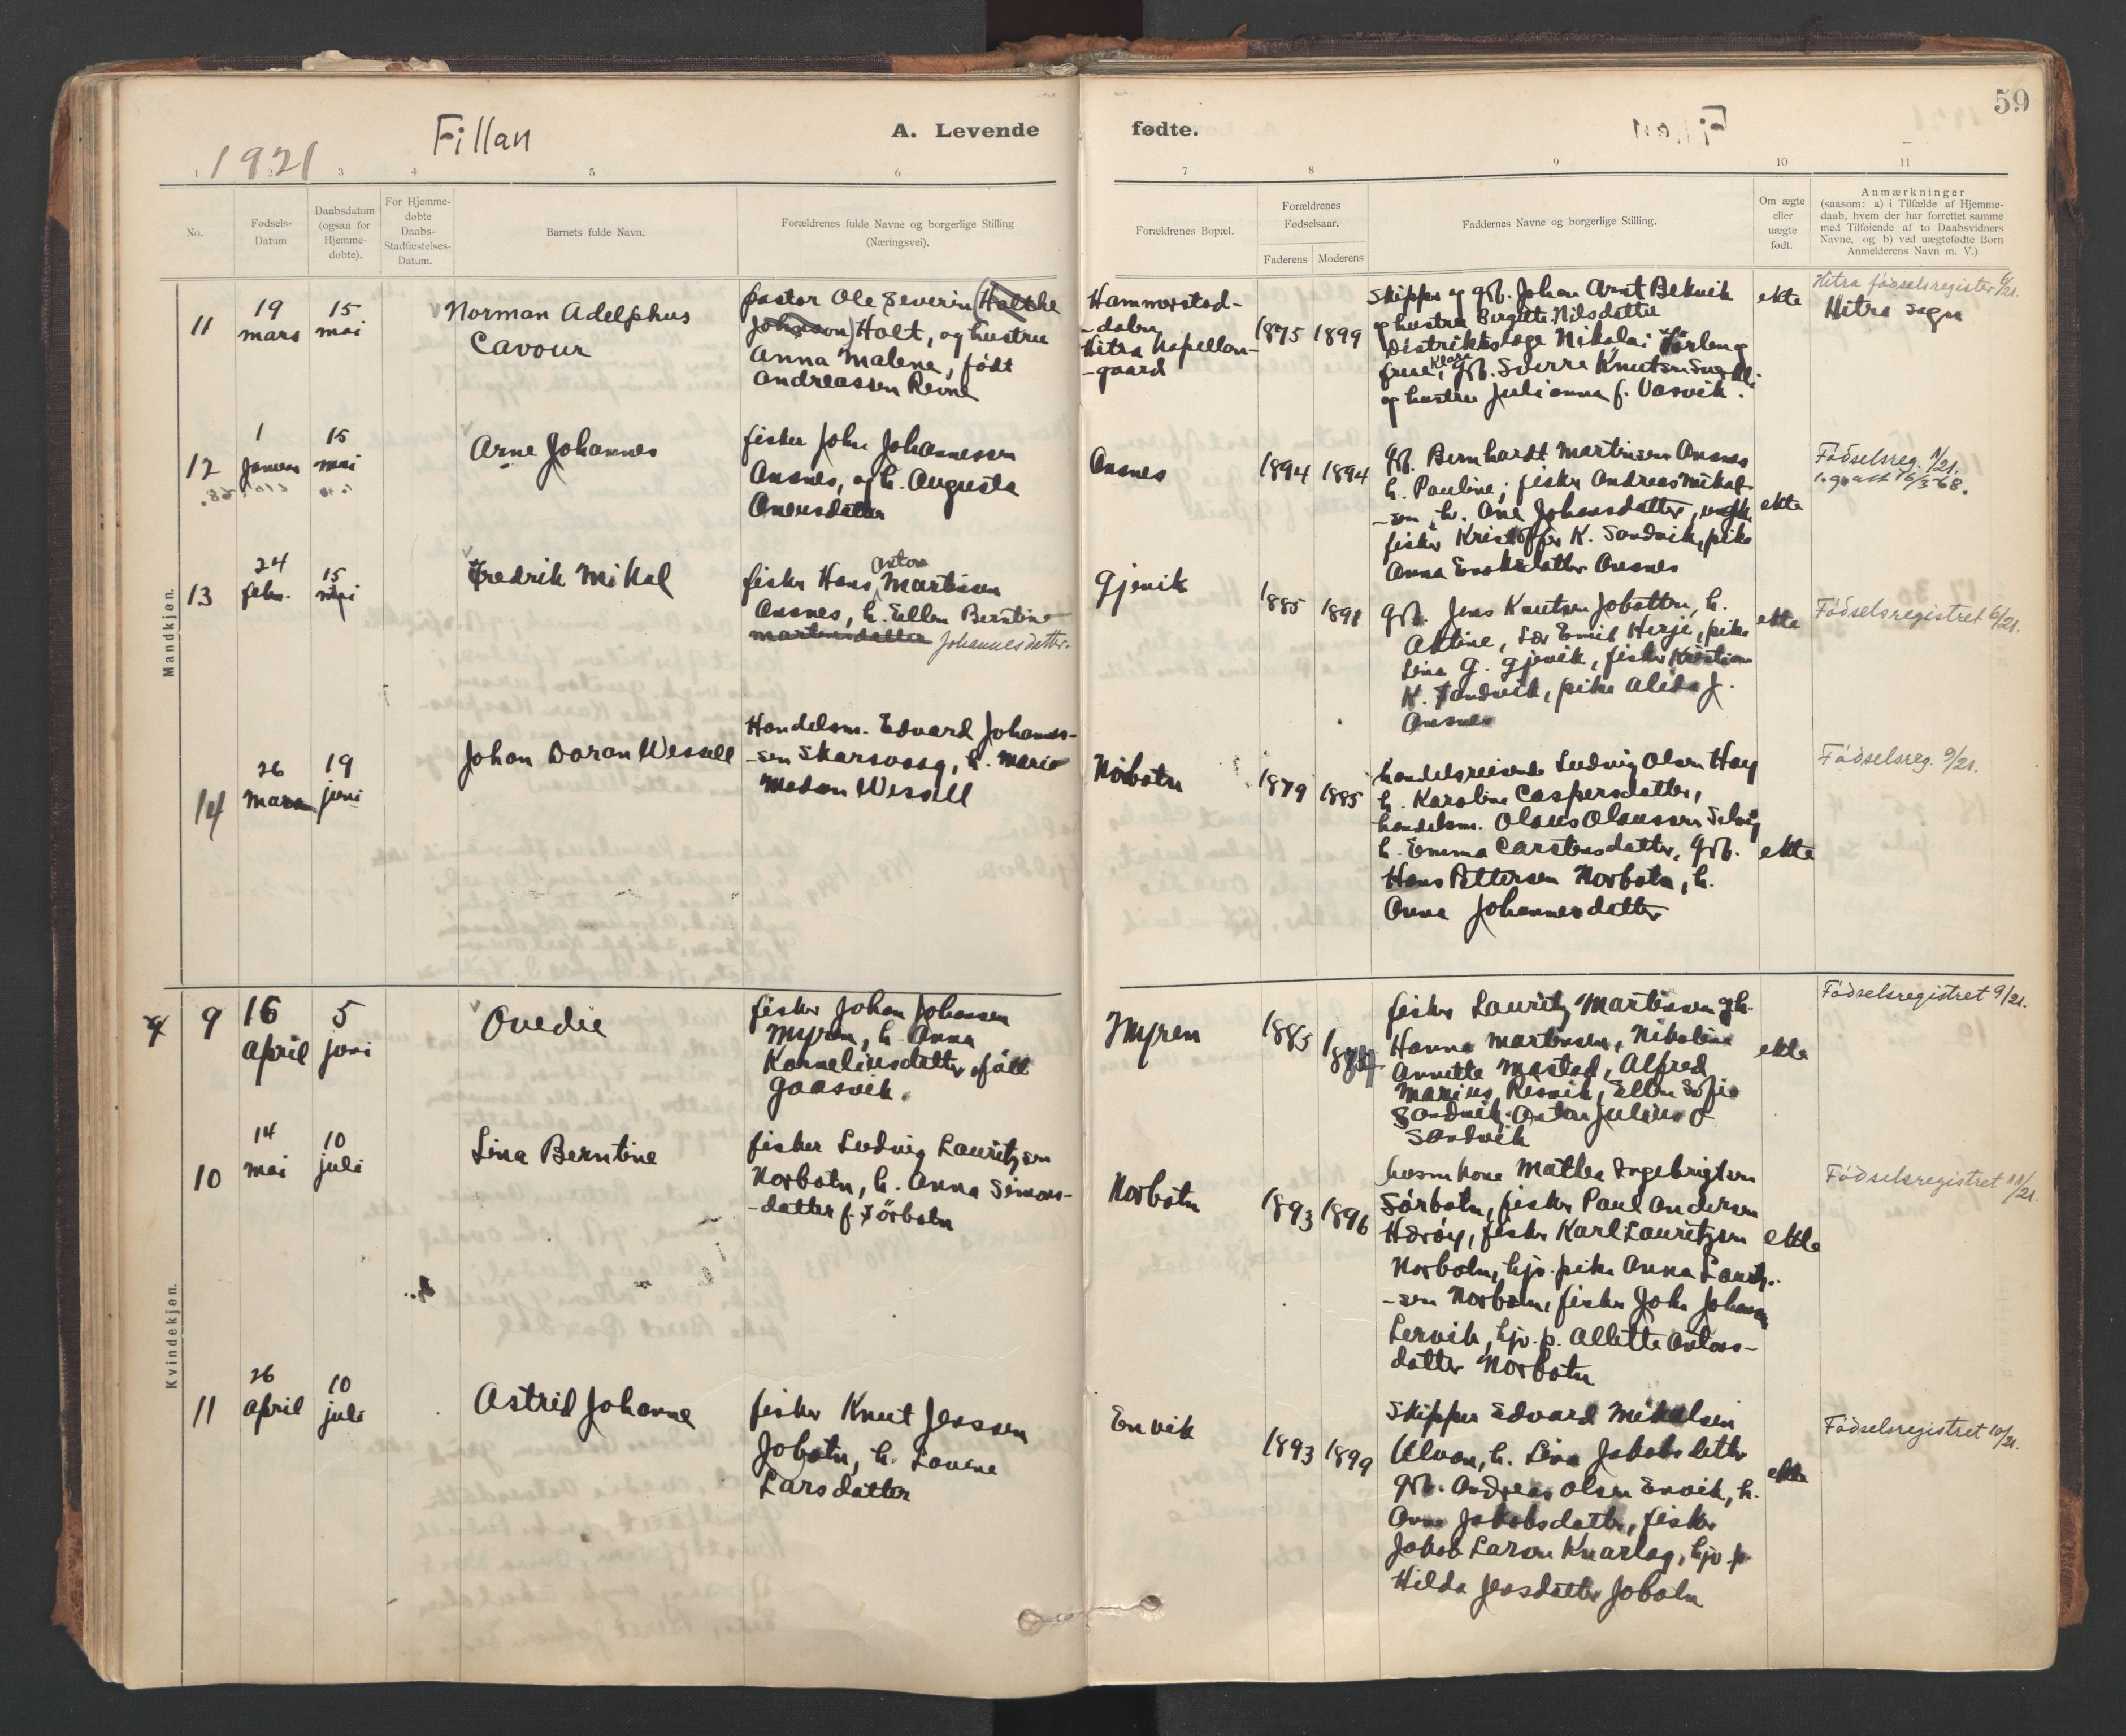 59
Fillan
A. Levende fødte.
1921
1 2 3 4 5 6 7 8 9 10 11
No.
Fødsels-
Datum
Daabsdatum
(ogsaa for
Hjemme-
døbte).
For Hjemme-
døbte
Daabs-
Stadfæstelses-
Datum.
Barnets fulde Navn.
Forældrenes fulde Navne og borgerlige Stilling
(Næringsvei).
Forældrenes Bopæl.
Forældrenes
Fødselsaar.
Faderens Moderens
Faddernes Navne og borgerlige Stilling.
Om ægte
eller
uægte
født.
Anmærkninger
(saasom: a) i Tilfælde af Hjemme-
daab, hvem der har forrettet samme
med Tilføiende af to Daabsvidners
Navne, og b) ved uægtefødte Børn
Anmelderens Navn m. V.)
Mandkjøn.
11
19
mars
15
mai
Norman Adelphus
Cavour
pastor Ole Severin (Holthe
Johnson) Holt, og hustru
Anna Malene, født
Andreassen Revne
Hammerstad-
-dalen
Hitra kapellan-
-gaard
1875 1899
Skipper og gb. Johan Arnt Bekvik
og hustru Birgitte Nilsdatter
Distriktslæge Nikolai
frue Klara, gb. Sverre Knutsen
og hustru Julianna f. Vasvik.
ekte
Hitra fødselsregister 6/21.
Hitra sogn
12
1
januar
15
mai
Arne Johannes
fisker John Johannessen
Ansnes, og h. Augusta
Anensdatter
Ansnes
1894 1894
gb. Bernhardt Martinsen Ansnes
h. Pauline; fisker Andreas Mikal-
-sen, h. Ane Johansdatter, ungk
fisker Kristoffer K. Sandvik, pike
Anna Enoksdatter Ansnes
ekte
Fødselsreg. 1/21.
13
24
febr.
15
mai
Fredrik Mikal
fisker Hans Anton Martinsen
Ansnes, h. Ellen Berntine
Martinsdatter Johannesdatter.
Gjevik
1885 1891
gb. Jens Knutsen Jobotten, h.
Aktine, Emil Herje, pike
Lina G. Gjevik, fisker Kristian
K. Sandvik, pike Alida J.
Ansnes
ekte
Fødselsregistret 6/21.
14
26
mars
19
juni
Johan Doran Wessell
Handelsm. Edvard Johannes-
-sen Skarsvaag, h. Marie
Madan Wessell
Norbotn
1879 1885
handelsreisende Ludvig Olsen Hay
h. Karoline Caspersdatter,
handelsm. Olaus Olaussen Selvig
h. Emma Carstensdatter, gb.
Hans Pettersen Norbotn, h.
Anna Johannesdatter
ekte
Fødselsreg. 9/21.
Kvindekjøn.
9
16
April
5
juni
Ovedie
fisker Johan Johansen
Myren, h. Anna
Korneliusdatter født
Gaasvik.
Myren
1885
fisker Lauritz Martinsen og h.
Hanna Martinsen, Nikoline
Annette Mastad, Alfred
Marius Risvik, Ellen Sofie
Sandvik. Anton Julius O.
Sandvik
ekte
Fødselsregistret 9/21.
10
14
mai
10
juli
Lina Berntine
fisker Ludvig Lauritzsen
Norbotn, h. Anna Simons-
-datter f. Sørbotn
Norbotn
1893 1896
husm kone Mathea Ingebrigtsen
Sørbotn, fisker Paul Andersen
Hærøy, fisker Karl Lauritzsen
Norbotn, hjv. pike Anna Lauritz-
-sen Norbotn, fisker John Johansen
Lervik, hjv. p. Allette Antons-
datter Norbotn
ekte
Fødselsregistret 11/21.
11
26
april
10
juli
Astrid Johanne
fisker Knut Jenssen
Jobotn, h. Lovine
Larsdatter
Envik
1893 1899
Skipper Edvard Mikalsen
Ulvan, h. Lina Jakobsdatter
gb. Andreas Olsen Envik, h.
Anna Jakobsdatter, fisker
Jakob Larsen Knarlag, hjv. p
Hilda Jensdatter Jobotn
ekte
Fødselsregistret 10/21.